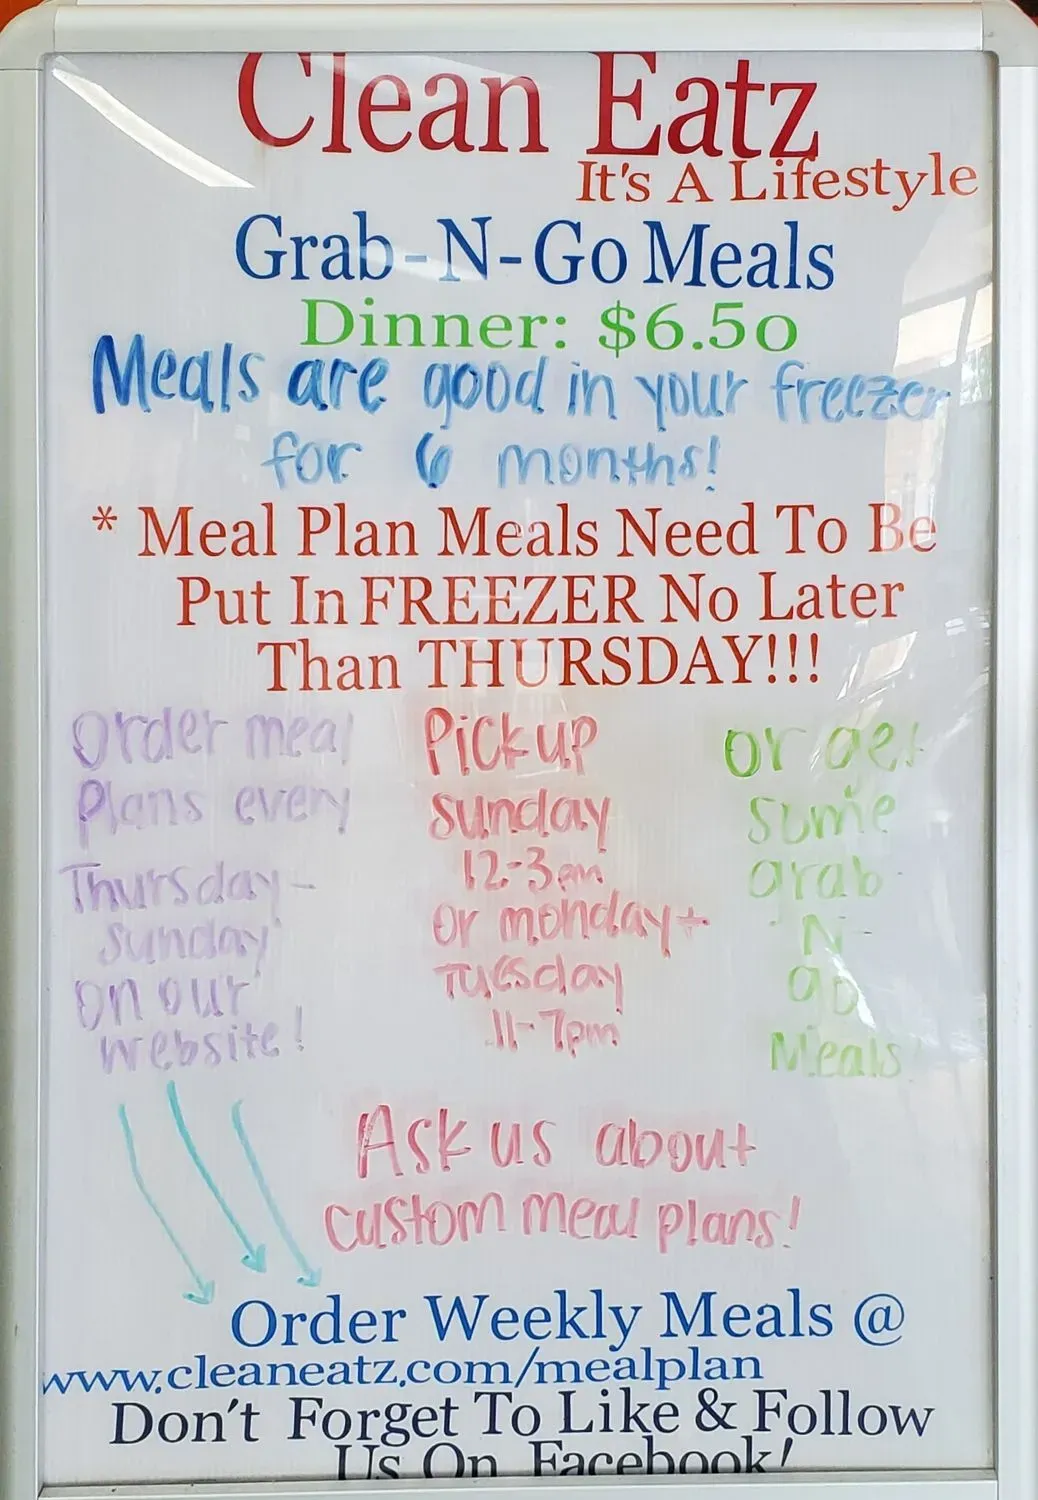 Clean Eatz
It's A Lifestyle
Grab-N-Go Meals
Dinner: $6.50
Meals are good in your freezer
for 6 months!
* Meal Plan Meals Need To Be
Put In FREEZER No Later
Than THURSDAY!!!
Order meal
Plans every
Thursday-
Sunday
on our
website!
Pickup
Sunday
12-3pm
or monday +
Tuesday
11-7pm
or get
some
grab
-N-
go
Meals!
Ask us about
custom meal plans!
Order Weekly Meals @
www.cleaneatz.com/mealplan
Don't Forget To Like & Follow
Us On Facebook!